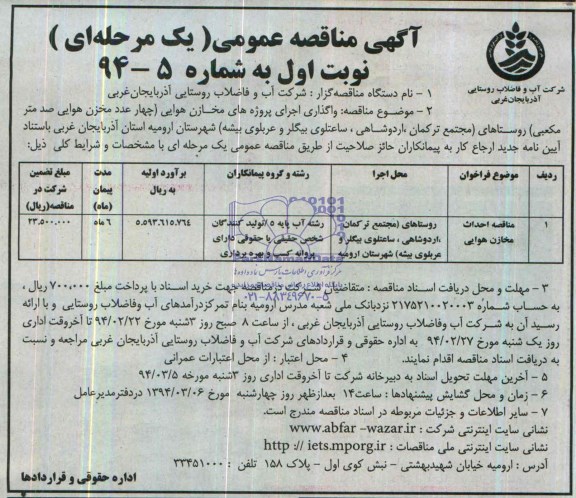 آگهی مناقصه عمومی( یک مرحله‌ای )
نوبت اول به شماره ۵ -۹۴
شرکت آب و فاضلاب روستایی
آذربایجان‌غربی
۱ - نام دستگاه مناقصه‌گزار : شرکت آب و فاضلاب روستایی آذربایجان‌غربی
۲ - موضوع مناقصه: واگذاری اجرای پروژه های مخازن هوایی (چهار عدد مخزن هوایی صد متر
مکعبی) روستاهای (مجتمع ترکمان ,اردوشاهی ، ساعتلوی بیگلر و عربلوی بیشه) شهرستان ارومیه استان آذربایجان غربی باستناد
آیین نامه جدید ارجاع کار به پیمانکاران حائز صلاحیت از طریق مناقصه عمومی یک مرحله ای با مشخصات و شرایط کلی ذیل:
ردیف | موضوع فراخوان | محل اجرا | رشته و گروه پیمانکاران | برآورد اولیه به ریال | مدت پیمان (ماه) | مبلغ تضمین شرکت در مناقصه(ریال)
۱ | مناقصه احداث مخازن هوایی | روستاهای (مجتمع ترکمان ،اردوشاهی ، ساعتلوی بیگلر و عربلوی بیشه) شهرستان ارومیه | رشته آب پایه ۵ /تولید کنندگان شخص حقیقی یا حقوقی دارای پروانه کسب و بهره برداری | ۵.۵۹۳.۶۱۵.۷۶۴ | ۶ ماه | ۲۳.۵۰۰.۰۰۰
۰۲۱-۸۸۳۴۹۶۷۰-۵
۳ - مهلت و محل دریافت اسناد مناقصه : متقاضیان شرکت در مناقصه جهت خرید اسناد با پرداخت مبلغ ۷۰۰.۰۰۰ ریال ،
به حساب شماره ۲۱۷۵۲۱۰۰۲۰۰۰۳ نزدبانک ملی شعبه مدرس ارومیه بنام تمرکزدرآمدهای آب وفاضلاب روستایی و با ارائه
رسید آن به شرکت آب وفاضلاب روستایی آذربایجان غربی ، از ساعت ۸ صبح روز ۳شنبه مورخ ۹۴/۰۲/۲۲ تا آخروقت اداری
روز یک شنبه مورخ ۹۴/۰۲/۲۷ به اداره حقوقی و قراردادهای شرکت آب و فاضلاب روستایی آذربایجان غربی مراجعه و نسبت
به دریافت اسناد مناقصه اقدام نمایند. ۴ - محل اعتبار : از محل اعتبارات عمرانی
۵ - آخرین مهلت تحویل اسناد به دبیرخانه شرکت تا آخروقت اداری روز ۳شنبه مورخه ۹۴/۰۳/۵
۶ - زمان و محل گشایش پیشنهادها : ساعت۱۴ بعدازظهر روز چهارشنبه مورخ ۱۳۹۴/۰۳/۰۶ دردفترمدیرعامل
۷ - سایر اطلاعات و جزئیات مربوطه در اسناد مناقصه مندرج است.
نشانی سایت اینترنتی شرکت : www.abfar -wazar.ir
نشانی سایت اینترنتی ملی مناقصات : http :// iets.mporg.ir
آدرس : ارومیه خیابان شهیدبهشتی - نبش کوی اول - پلاک ۱۵۸ تلفن : ۳۳۴۵۱۰۰۰
اداره حقوقی و قراردادها